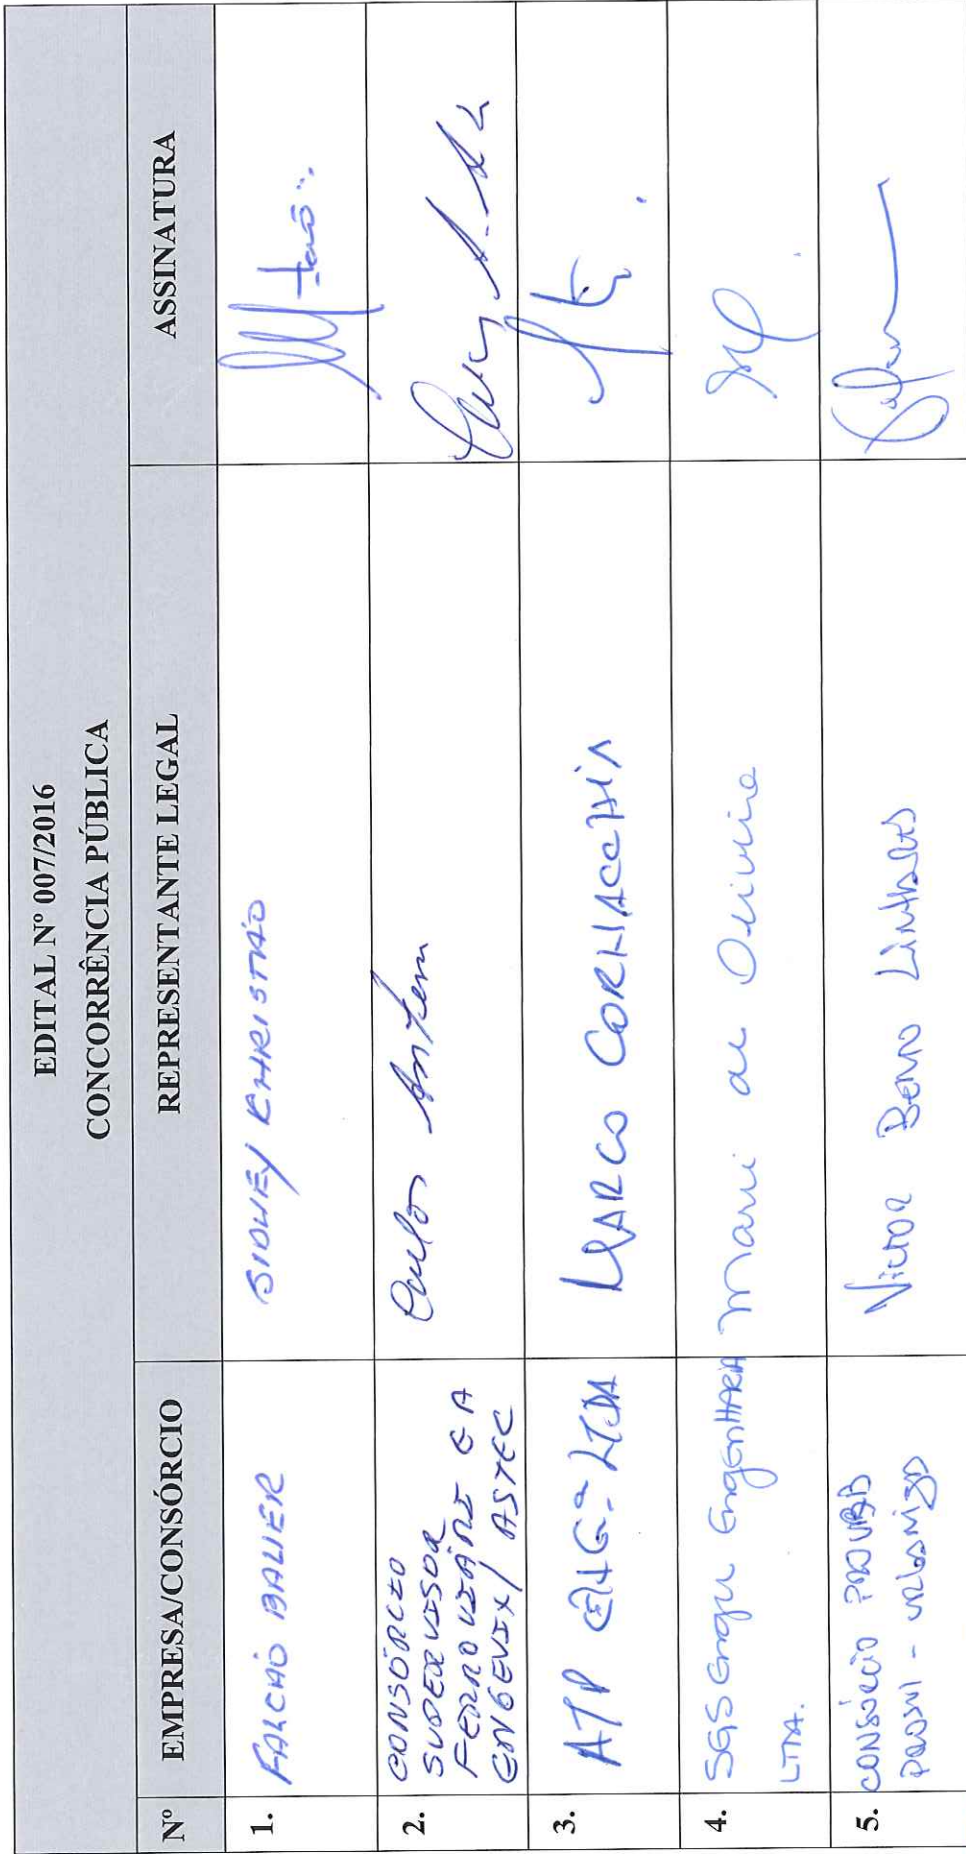 EDITAL Nº 007/2016
CONCORRÊNCIA PÚBLICA
Nº EMPRESA/CONSÓRCIO REPRESENTANTE LEGAL ASSINATURA
1. FALCÃO BAUER SIDNEY CHRISTIÃO
2. CONSÓRCIO
SUPERVISOR
FERROVIÁRIO
ENGEVIX / ASTEC
Carlos
3. ATP ENGª LTDA MARCO CORNACCHIA
4. SGS Enger EngenHARIA
LTDA.
de Oliveira
5. CONSÓRCIO
Victor Bento Linhares